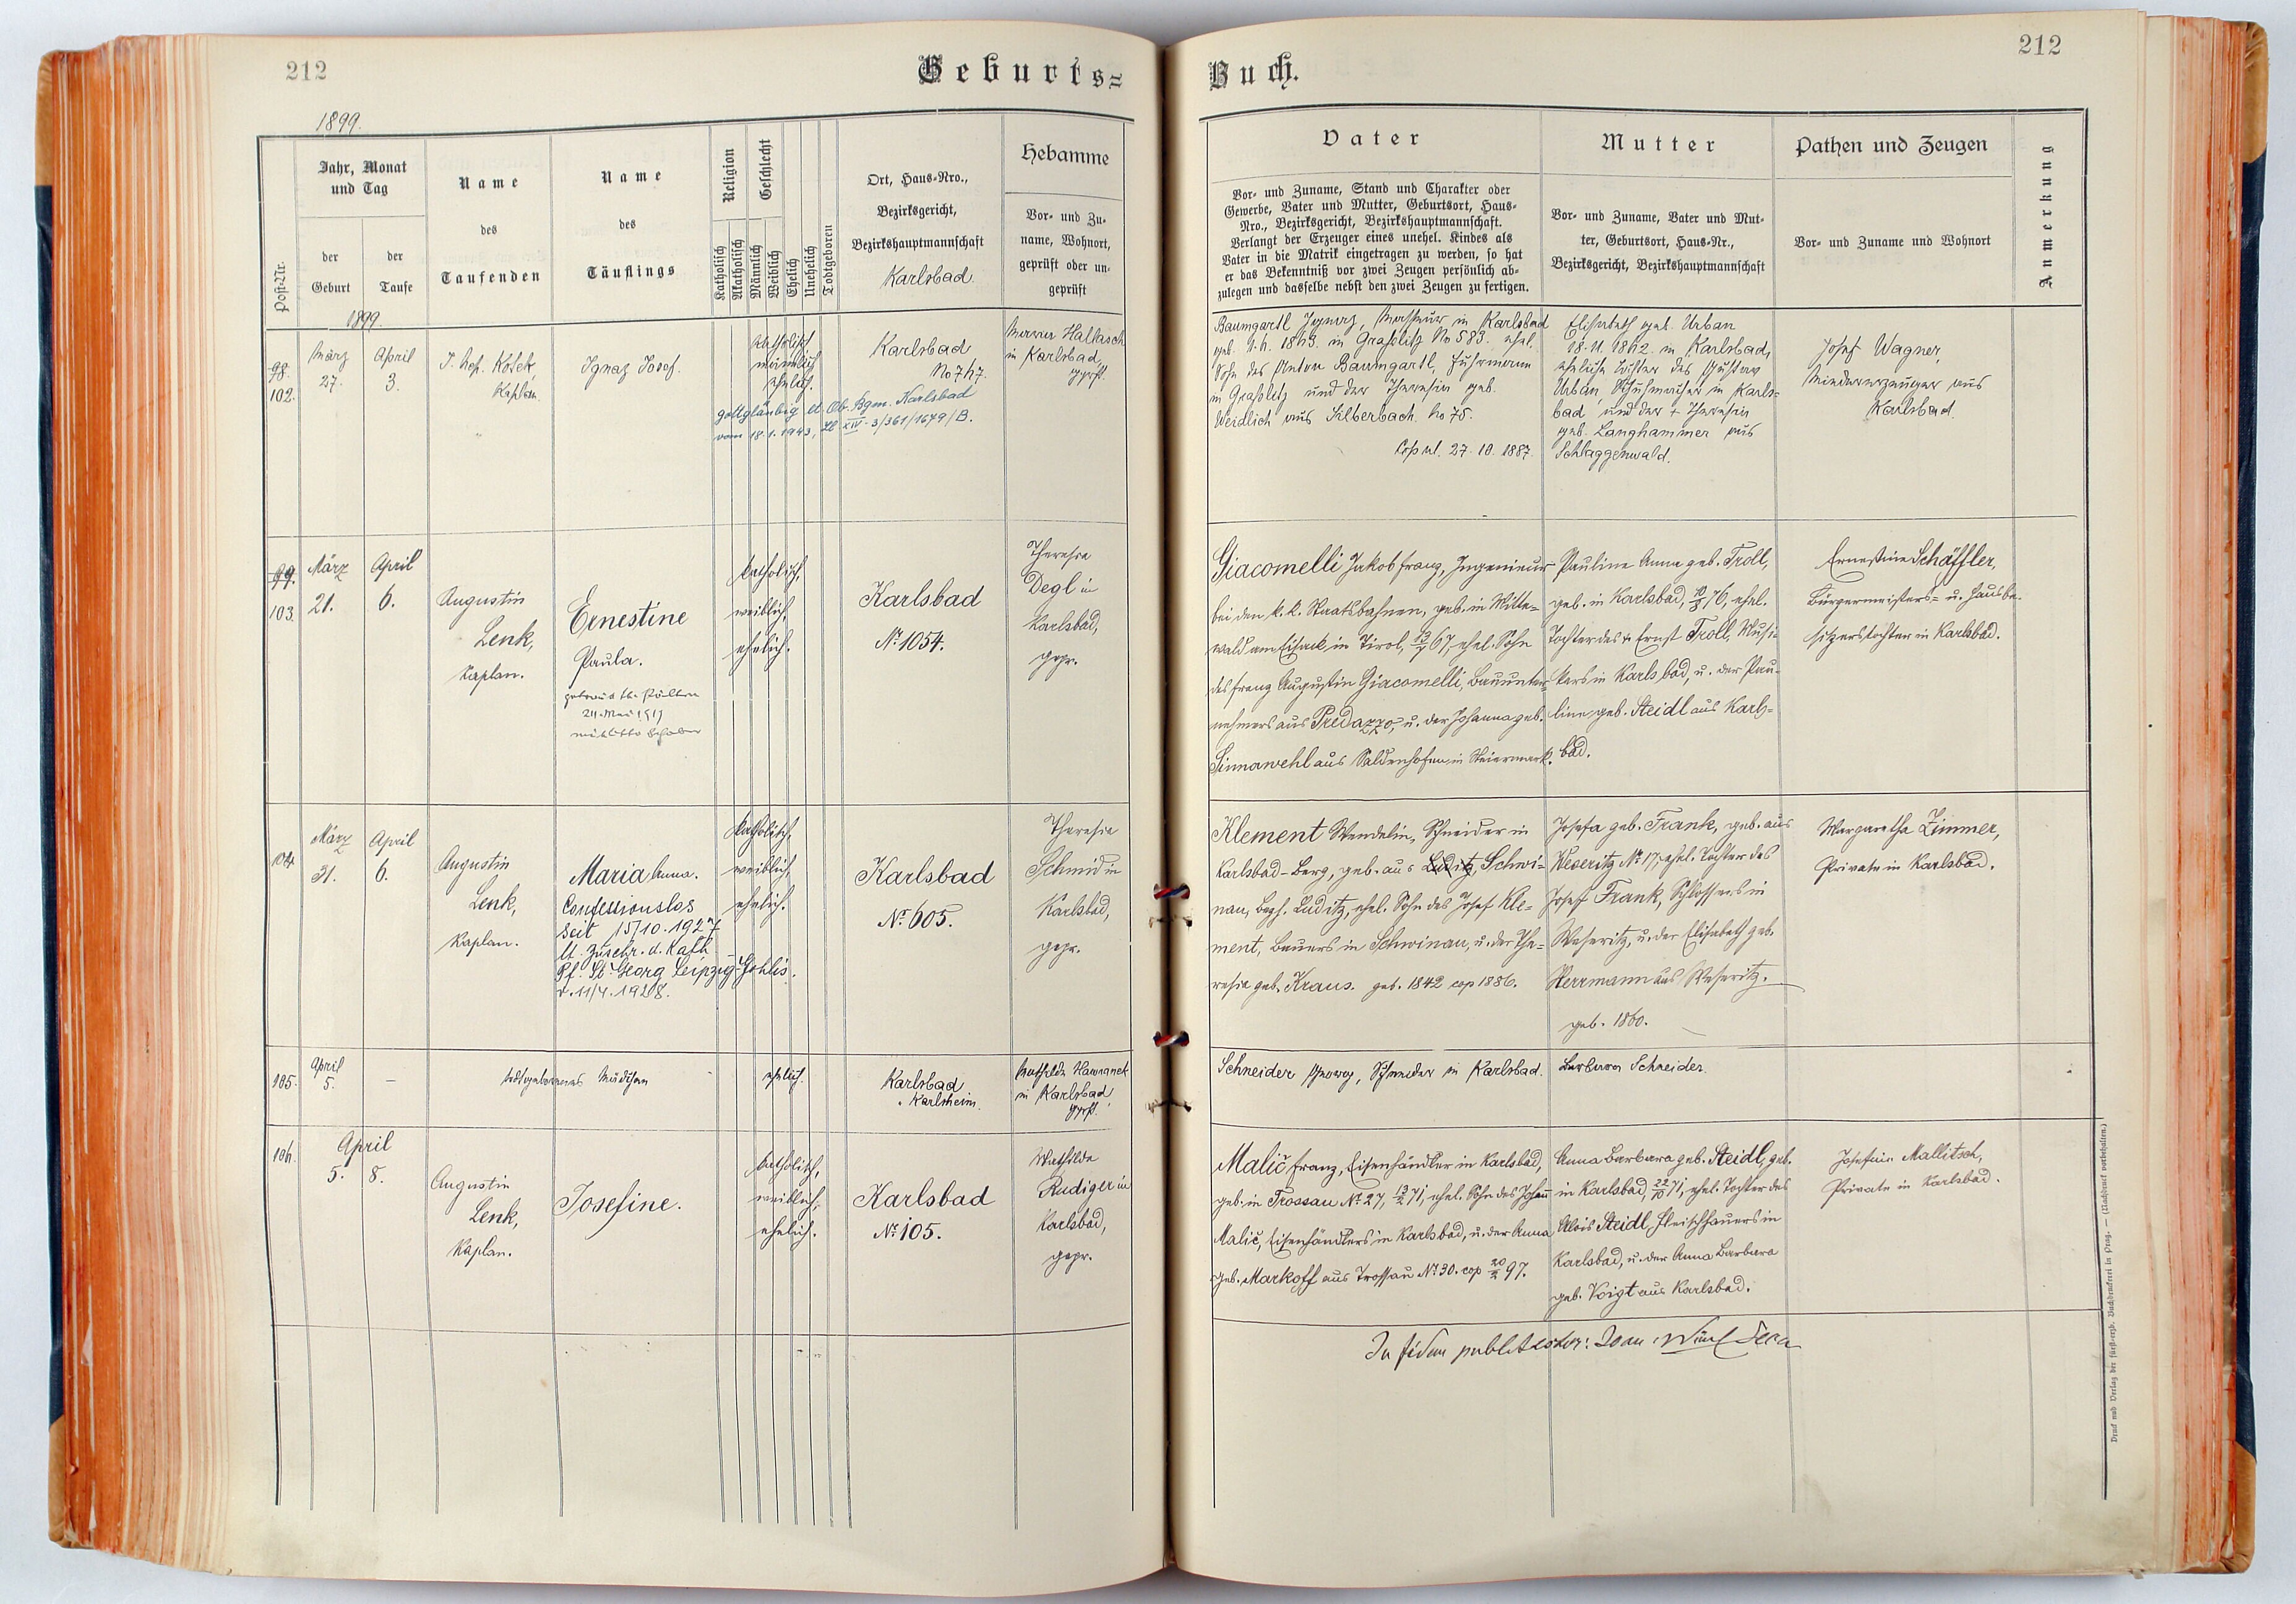 212
Geburts=
1899.
Post-Nr.
Jahr, Monat
und Tag
der
Geburt
der
Taufe
Name
des
Taufenden
Name
des
Täuflings
Religion
Geschlecht
Katholisch
Akatholisch
Männlich
Weiblich
Ehelich
Unehelich
Todtgeboren
Ort, Haus-Nro.,
Bezirksgericht,
Bezirkshauptmannschaft
Karlsbad.
Hebamme
Vor- und Zu-
name, Wohnort,
geprüft oder un-
geprüft
1899.
98.
102.
März
27.
April
3.
J. Nep. Kotek,
Kaplan
Ignaz Josef.
katholisch
männlich
ehelich.
gottgläubig lt. Ob. Bgm. Karlsbad
vom 18.1.1943, Zl. XIV-3/361/1679/B.
Karlsbad
No 747.
in Karlsbad
99.
103.
März
21.
April
6.
Augustin
Lenk,
Kaplan.
Ernestine
Paula.
katholisch,
weiblich,
ehelich.
Karlsbad
No 1054.
Theresia
Degl in
Karlsbad,
gepr.
104.
März
31.
April
6.
Augustin
Lenk,
Kaplan.
Maria Anna.
Confessionslos
seit 15/10.1927
lt. Zuschr. d. Kath.
Pf. St. Georg Leipzig-Gohlis.
v. 11/4.1928.
katholisch,
weiblich,
ehelich.
Karlsbad
No 605.
Theresia
Schmid in
Karlsbad,
gepr.
105.
April
5.
–
todtgeborenes Mädchen
ehelich.
Karlsbad
Karlsheim.
Mathilde Hawranek
in Karlsbad
106.
April
5. 8.
Augustin
Lenk,
Kaplan.
Josefine.
katholisch,
weiblich,
ehelich.
Karlsbad
No 105.
Mathilde
Rudiger in
Karlsbad,
gepr.
212
Buch.
Vater
Vor- und Zuname, Stand und Charakter oder
Gewerbe, Vater und Mutter, Geburtsort, Haus-
Nro., Bezirksgericht, Bezirkshauptmannschaft.
Verlangt der Erzeuger eines unehel. Kindes als
Vater in die Matrik eingetragen zu werden, so hat
er das Bekenntniß vor zwei Zeugen persönlich ab-
zulegen und dasselbe nebst den zwei Zeugen zu fertigen.
Mutter
Vor- und Zuname, Vater und Mut-
ter, Geburtsort, Haus-Nr.,
Bezirksgericht, Bezirkshauptmannschaft
Pathen und Zeugen
Vor- und Zuname und Wohnort
Anmerkung
Baumgartl Ignaz, Masseur in Karlsbad
in Graslitz No 583. ehel.
Sohn des Anton Baumgartl, Fuhrmann
in Graslitz und der Theresia geb.
Weidlich aus Silberbach No 75.
Copul. 27.10.1887.
Elisabeth geb. Urban
18.11.1862. in Karlsbad,
eheliche Tochter des Gustav
Urban, Schuhmacher in Karls-
bad und der + Theresia
geb. Langhammer aus
Schlaggenwald.
Josef Wagner,
Miedererzeuger aus
Karlsbad.
Giacomelli Jakob Franz, Ingenieur
bei den k. k. Staatsbahnen, geb. in Mitte-
wald am Eisack in Tirol, 67, ehel. Sohn
des Franz Augustin Giacomelli, Bauunter-
nehmers aus Predazzo, u. der Johanna geb.
Sinnawehl aus Saldenhofen in Steiermark.
Pauline Anna geb. Troll,
geb. in Karlsbad, 76, ehel.
Tochter des + Ernst Troll, Musi-
kers in Karlsbad, u. der Pau-
line geb. Steidl aus Karls-
bad.
Ernestine Schäffler,
Bürgermeisters- u. Hausbe-
sitzerstochter in Karlsbad.
Klement Wendelin, Schneider in
Karlsbad-Berg, geb. aus Luditz, Schwi-
nau, Bezh. Luditz, ehel. Sohn des Josef Kle-
ment, Bauers in Schwinau, u. der The-
resia geb. Kraus. geb. 1842 cop 1886.
Josefa geb. Frank, geb. aus
Weseritz No 17, ehel. Tochter des
Josef Frank, Schlossers in
Weseritz, u. der Elisabeth geb.
Herrmann aus Weseritz.
geb. 1860.
Margaretha Zimmer,
Private in Karlsbad.
Schneider Georg, Schneider in Karlsbad.
Barbara Schneider.
Malič Franz, Eisenhändler in Karlsbad,
geb. in Trossau No 27, 71, ehel. Sohn des Johann
Malič, Eisenhändlers in Karlsbad, u. der Anna
geb. Markoff aus Trossau No 30. cop 20/2 97.
Anna Barbara geb. Steidl, geb.
in Karlsbad, 22/10 71, ehel. Tochter des
Alois Steidl, Fleischhauers in
Karlsbad, u. der Anna Barbara
geb. Voigt aus Karlsbad.
Josefine Mallitsch,
Private in Karlsbad.
In fidem publicationis:
Druck und Verlag der fürst-erzb. Buchdruckerei in Prag. — (Nachdruck vorbehalten.)